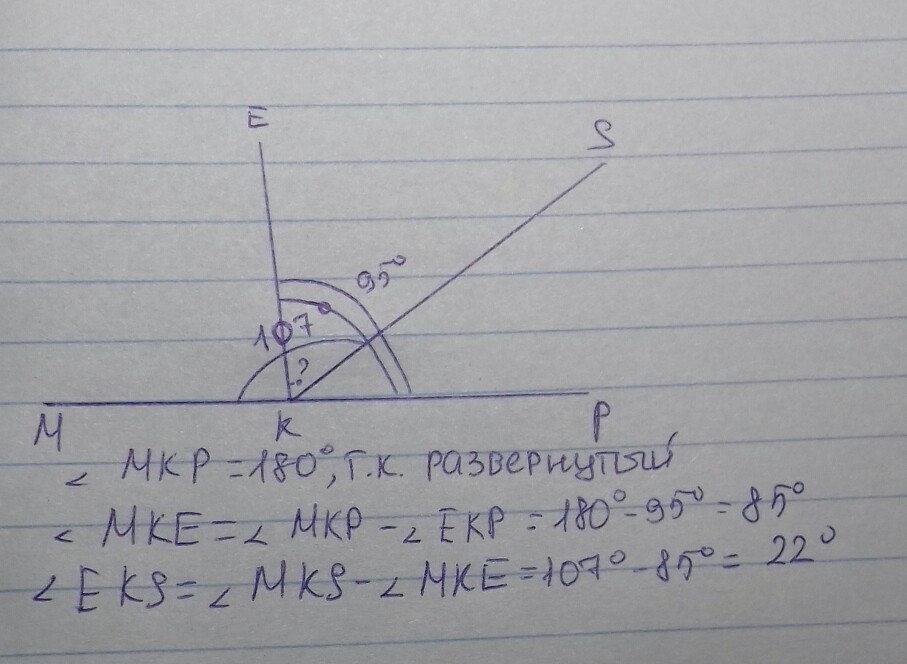 E
S
95°
107°
?
M K P
∠ MKP = 180°, т.к. развернутый
∠ MKE = ∠ MKP - ∠ EKP = 180° - 95° = 85°
∠ EKS = ∠ MKS - ∠ MKE = 107° - 85° = 22°